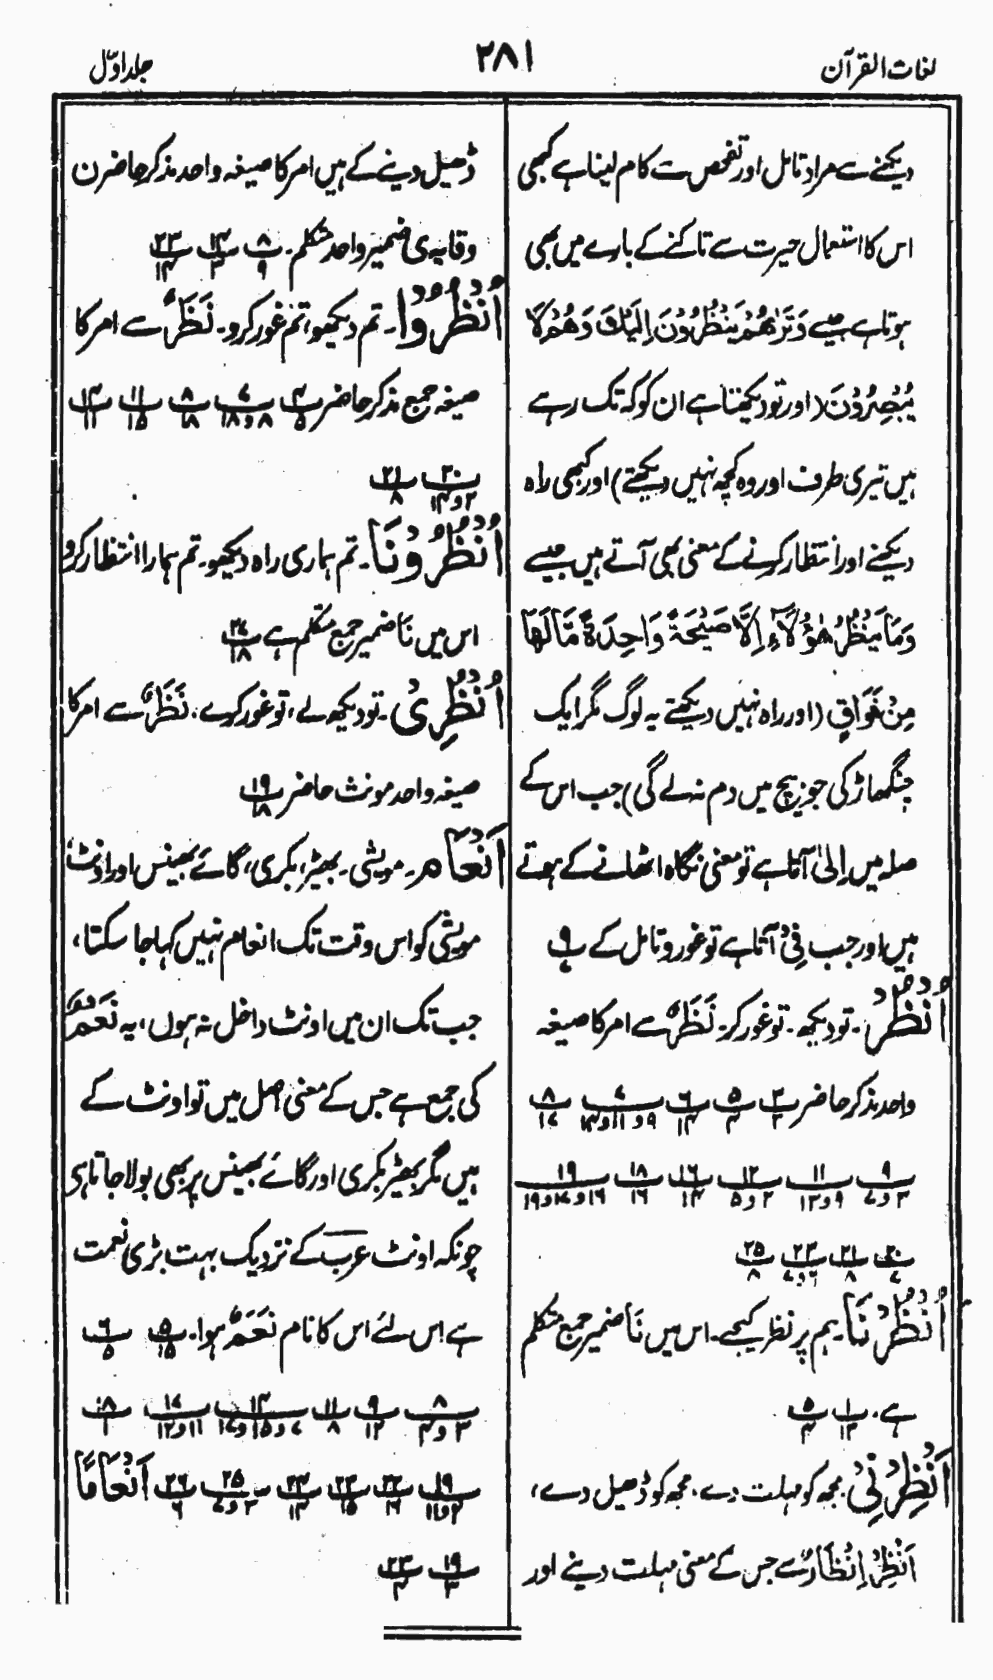 لغات القرآن
۲۸۱
جلد اوّل
دیکھنے سے مراد تامل اور تفحص سے کام لینا ہے کبھی
اس کا استعمال حیرت سے تاکنے کے بارے میں بھی
ہوتا ہے جیسے وَتَرٰىهُمْ يَنْظُرُوْنَ اِلَيْكَ وَهُمْ لَا
يُبْصِرُوْنَ (اور تو دیکھتا ہے ان کو کہ تک رہے
ہیں تیری طرف اور وہ کچھ نہیں دیکھتے) اور کبھی راہ
دیکھنے اور انتظار کرنے کے معنی بھی آتے ہیں جیسے
وَمَا يَنْظُرُ هٰٓؤُلَآءِ اِلَّا صَيْحَةً وَّاحِدَةً مَّا لَهَا
مِنْ فَوَاقٍ (اور راہ نہیں دیکھتے یہ لوگ مگر ایک
چنگھاڑ کی جو بیچ میں دم نہ لے گی) جب اس کے
صلہ میں اِلیٰ آتا ہے تو معنی نگاہ اٹھانے کے ہوتے
ہیں اور جب فِیْ آتا ہے تو غور و تامل کے ۹/۷
اُنْظُرْ۔ تو دیکھ۔ تو غور کر۔ نَظَرٌ سے امر کا صیغہ
واحد مذکر حاضر ۳/۲ ۵/۴ ۶/۱۴ ۷/۹و۱۱و۱۴ ۸/۱۷
۹/۳و۷ ۱۱/۹و۱۳ ۱۲/۲و۵ ۱۶/۱۴ ۱۸/۱۶ ۱۹/۱۶و۱۷و۱۹
۲۰/۷ ۲۱/۸ ۲۳/۶و۷ ۲۵/۸
اُنْظُرْنَا۔ ہم پر نظر کیجے۔ اس میں نَا ضمیر جمع متکلم
ہے۔ ۱/۱۳ ۵/۴
اَنْظِرْنِیْ۔ مجھ کو مہلت دے، مجھ کو ڈھیل دے،
اَنْظِرْ اِنْظَارٌ سے جس کے معنی مہلت دینے اور
ڈھیل دینے کے ہیں امر کا صیغہ واحد مذکر حاضر ن
وقایہ ی ضمیر واحد متکلم۔ ۸/۹ ۱۴/۳ ۲۳/۱۴
اُنْظُرُوْا۔ تم دیکھو، تم غور کرو۔ نَظَرٌ سے امر کا
صیغہ جمع مذکر حاضر ۴/۵ ۷/۸و۱۸ ۸/۱۸ ۱۱/۱۵ ۱۴/۱۱
۲۰/۲و۱۴ ۲۱/۸
اُنْظُرُوْنَا۔ تم ہماری راہ دیکھو۔ تم ہمارا انتظار کرو
اس میں نَا ضمیر جمع متکلم ہے ۲۷/۱۸
اُنْظُرِیْ۔ تو دیکھ لے، تو غور کرلے، نَظَرٌ سے امر کا
صیغہ واحد مونث حاضر ۱۹/۱۸
اَنْعَام۔ مویشی۔ بھیڑ، بکری، گائے بھینس اور اونٹ
مویشی کو اس وقت تک انعام نہیں کہا جا سکتا،
جب تک ان میں اونٹ داخل نہ ہوں، یہ نَعَمٌ
کی جمع ہے جس کے معنی اصل میں تو اونٹ کے
ہیں مگر بھیڑ بکری اور گائے بھینس پر بھی بولا جاتا ہی
چونکہ اونٹ عرب کے نزدیک بہت بڑی نعمت
ہے اس لئے اس کا نام نَعَمٌ ہوا۔ ۵/۱۵ ۶/۵
۸/۳و۴ ۹/۱۲ ۱۱/۸ ۱۴/۷و۱۵و۱۷ ۱۷/۱۱و۱۲ ۱۸/۱
۱۹/۲و۱۱ ۲۲/۱۶ ۲۳/۱۵ ۲۴/۱۲ ۲۵/۲و۷ ۲۶/۶ اَنْعَامًا
۱۹/۳ ۲۳/۴